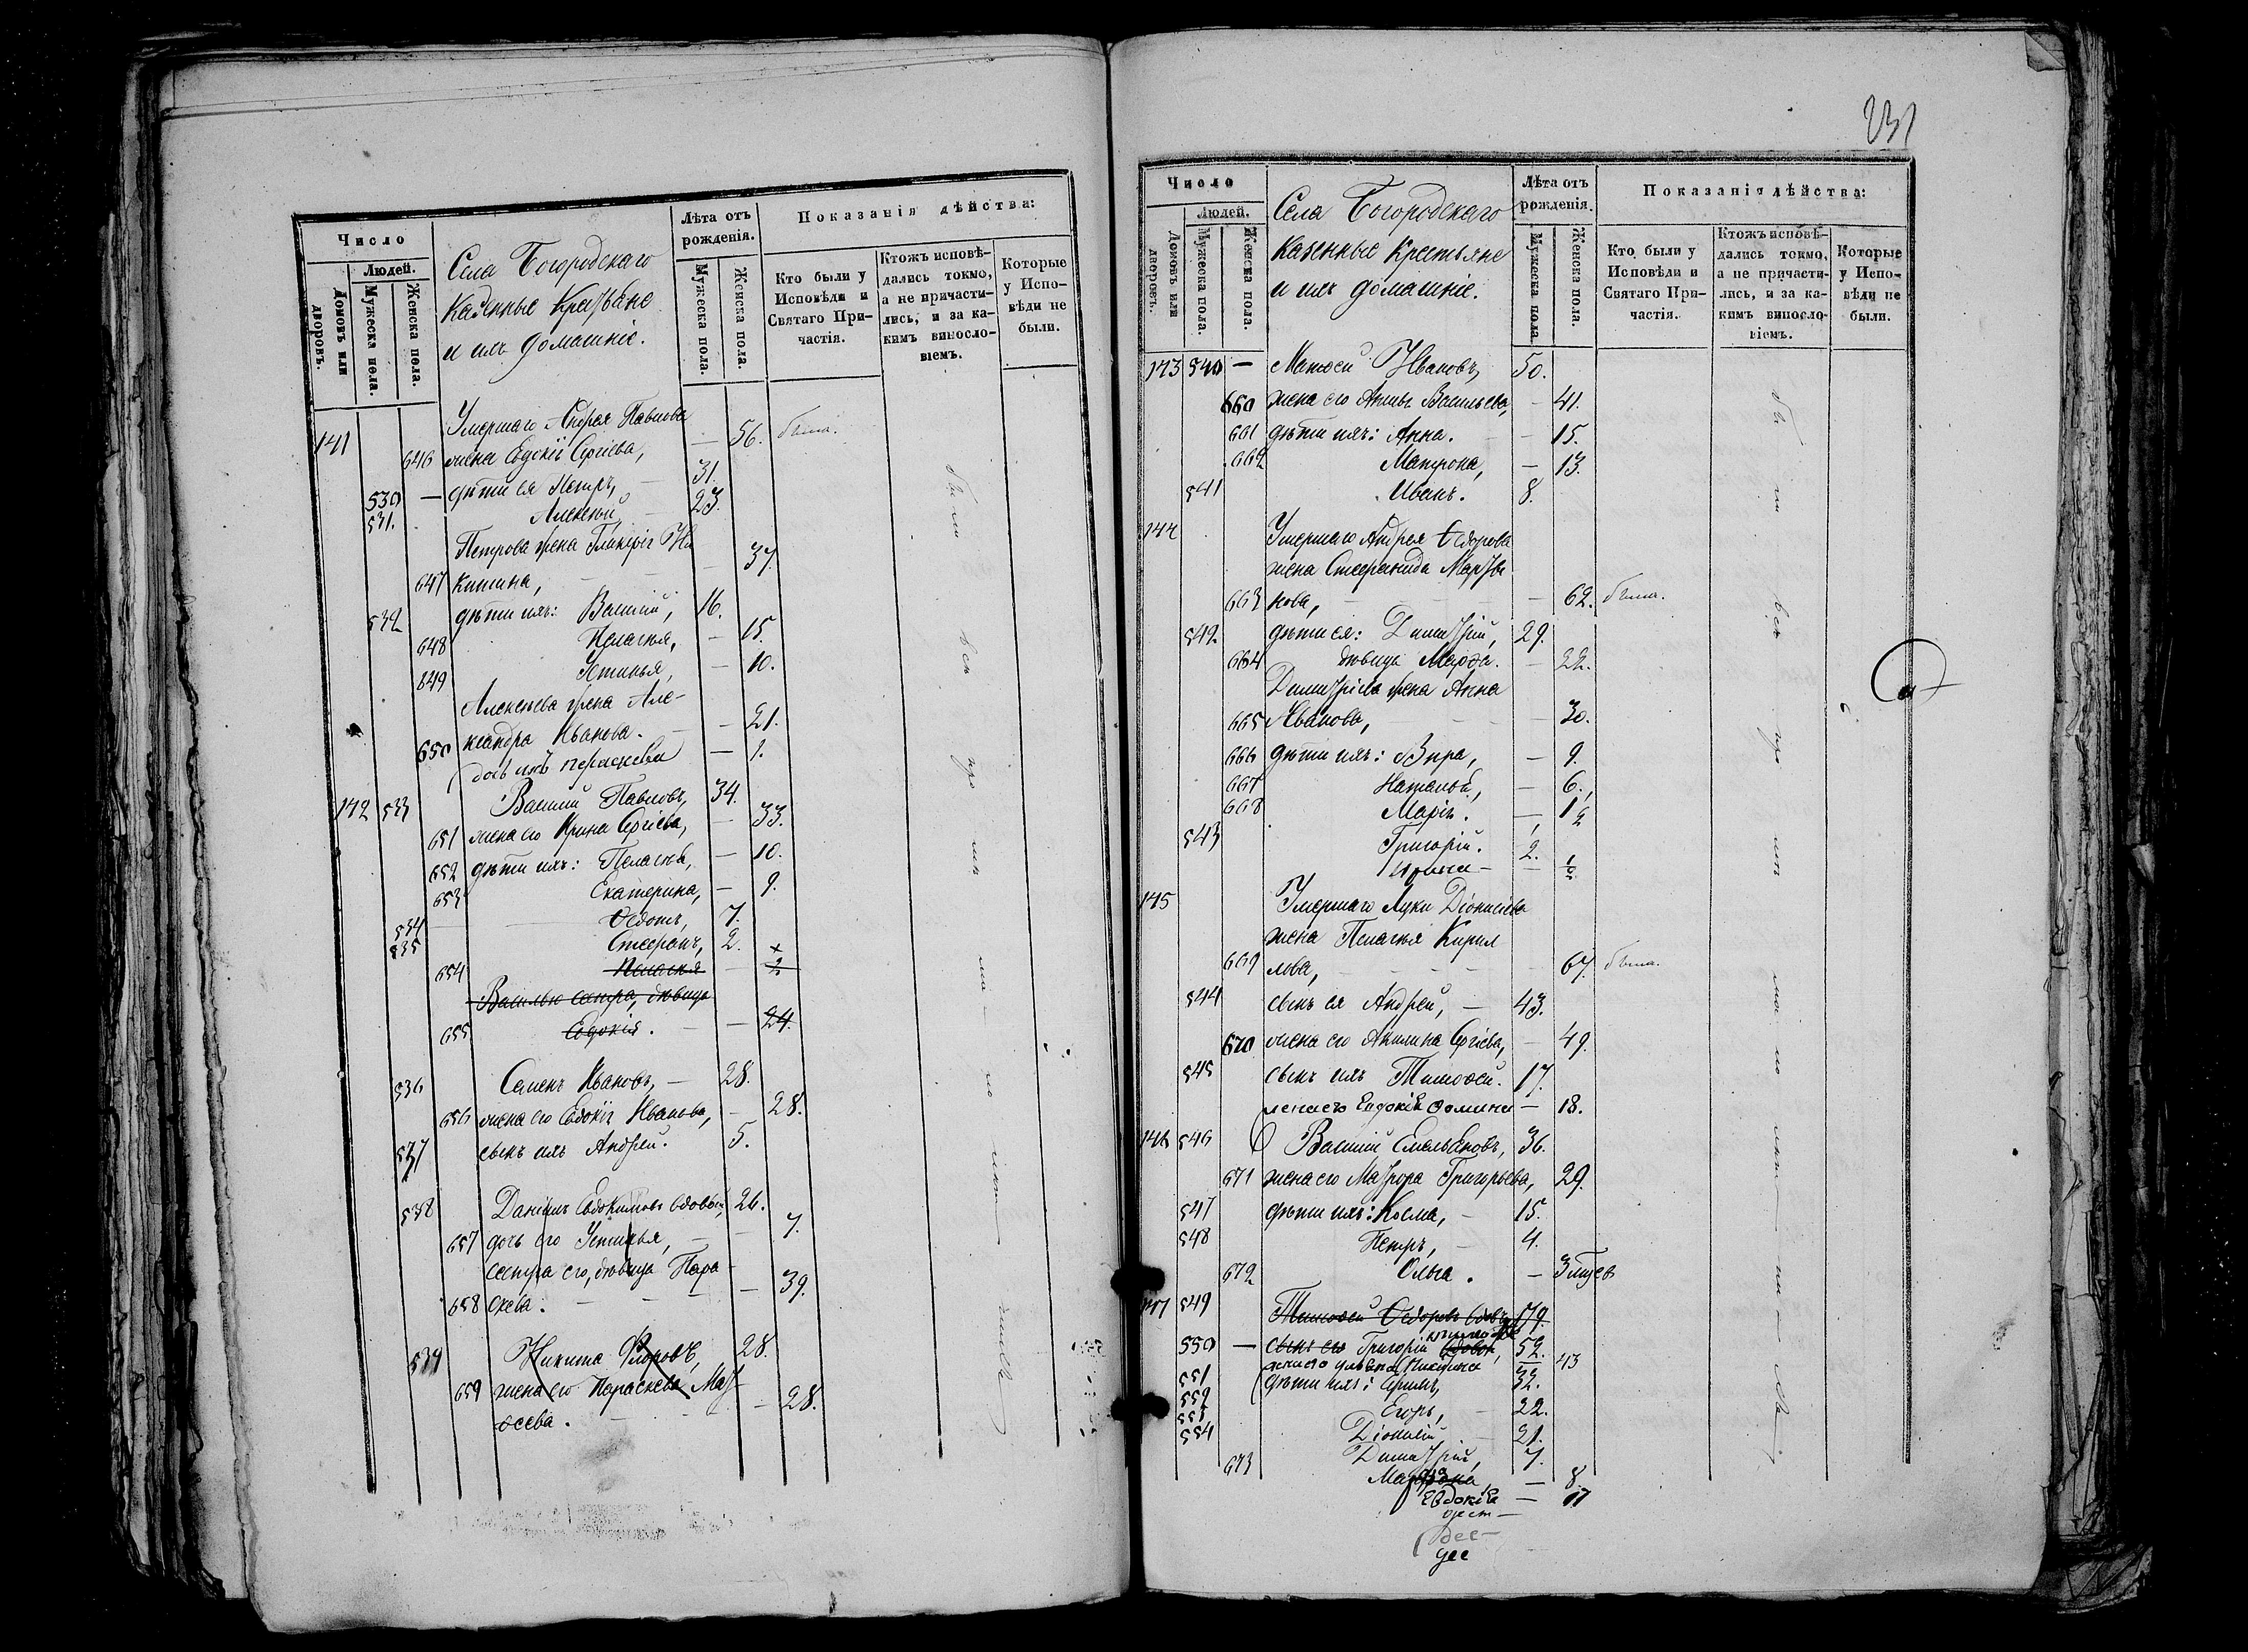 Число
Людей.
Домовъ или дворовъ.
Мужеска пола.
Женска пола.
Села Богородскаго
Казенные Крестьяне
и ихъ домашніе.
Лѣта отъ рожденія.
Мужеска пола.
Женска пола.
Показанія дѣйства:
Кто были у Исповѣди и Святаго Причастія.
Ктожъ исповѣдались токмо, а не причастились, и за какимъ винословіемъ.
Которые у Исповѣди не были.
141 Умершаго Андрея Павлова
646 жена Евдокія Сергіева, — 56. была.
530 — дѣти ея Петръ, — 31.
531. Алексѣй, 23.
Петрова жена Гликерія Ни
647 китина, — 37.
532 дѣти ихъ: Василій, 16.
648 Пелагѣя, — 15.
649 Устинья, — 10.
Алексѣева жена Але-
650 ксандра Иванова. — 21.
дочь ихъ Параскева — 1.
142 533 Василій Павловъ, 34.
651 жена его Ирина Сергіева, — 33.
652 дѣти ихъ: Пелагѣя, — 10.
653 Екатерина, — 9.
534 Ѳедотъ, 7.
535 Стефанъ, 2.
654 Пелагѣя — 2
Васильева сестра, дѣвица
655 Евдокія. — 24.
536 Семенъ Ивановъ, — 28.
656 жена его Евдокія Иванова, — 28.
537 сынъ ихъ Андрей. 5.
538 Даніилъ Евдокимовъ вдовый, 26.
657 дочь его Устинья, — 7.
сестра его, дѣвица Пара-
658 скева. — 39.
539 Никита Флоровъ, 28.
659 жена его Параскева Мат-
ѳеева. — 28.
231
Число
Людей.
Домовъ или дворовъ.
Мужеска пола.
Женска пола.
Села Богородскаго
казенные Крестьяне
и ихъ домашніе.
Лѣта отъ рожденія.
Мужеска пола.
Женска пола.
Показанія дѣйства:
Кто были у Исповѣди и Святаго Причастія.
Ктожъ исповѣдались токмо, а не причастились, и за какимъ винословіемъ.
Которые у Исповѣди не были.
143 540 — Матѳей Ивановъ, 50.
660 жена его Анна Васильева, — 41.
661 дѣти ихъ: Анна. — 15.
662 Матрона, — 13.
541 Иванъ. 8.
144 Умершаго Андрея Ѳедорова
жена Стефанида Марты
663 нова, — 62. была.
542 дѣти ея: Димитрій, 29.
664 дѣвица Марѳа. — 22.
Димитріева жена Анна
665 Иванова, — 30.
666 дѣти ихъ: Вѣра, — 9.
667 Наталія, — 6.
668 Марія. — 1/2
543 Григорій. 2.
Ирина — 1/2
145 Умершаго Луки Діонисіева
жена Пелагѣя Кирил
669 лова, — 67. была.
544 сынъ ея Андрей, — 43.
670 жена его Акилина Сергіева, — 49.
545 сынъ ихъ Тимоѳей. 17.
жена его Евдокія Ѳомина — 18.
146 546 Василій Емельяновъ, 36.
671 жена его Мавра Григорьева, 29.
547 дѣти ихъ: Косма, — 15.
548 Петръ, — 4.
672 Ольга. — 3 мѣсяц
147 549 Тимоѳей Ѳедоровъ вдовъ, 79.
550 — сынъ его Григорій вдовый, 52.
жена его Ульяна Никитина 43
551 дѣти ихъ: Ефимъ, 32.
552 Егоръ, — 22.
553 Діонисій — 21.
554 Димитрій, 7.
673 Марѳа — 8
Евдокія — 17